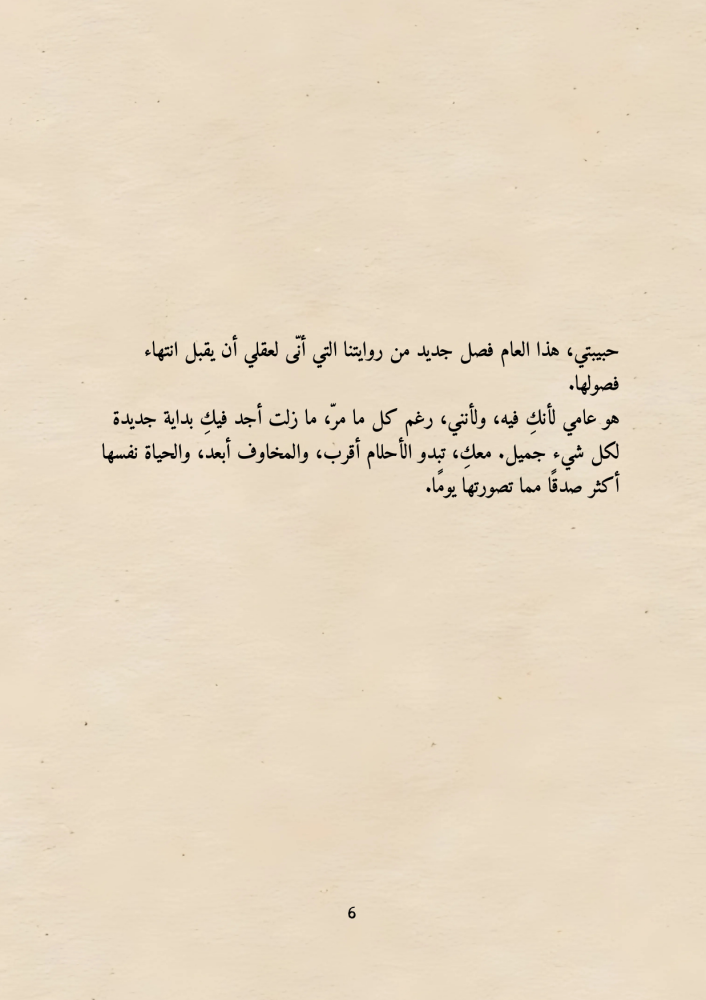 حبيبتي، هذا العام فصل جديد من روايتنا التي أنّى لعقلي أن يقبل انتهاء
فصولها.
هو عامي لأنكِ فيه، ولأنني، رغم كل ما مرّ، ما زلت أجد فيكِ بداية جديدة
لكل شيء جميل. معكِ، تبدو الأحلام أقرب، والمخاوف أبعد، والحياة نفسها
أكثر صدقًا مما تصورتها يومًا.
6